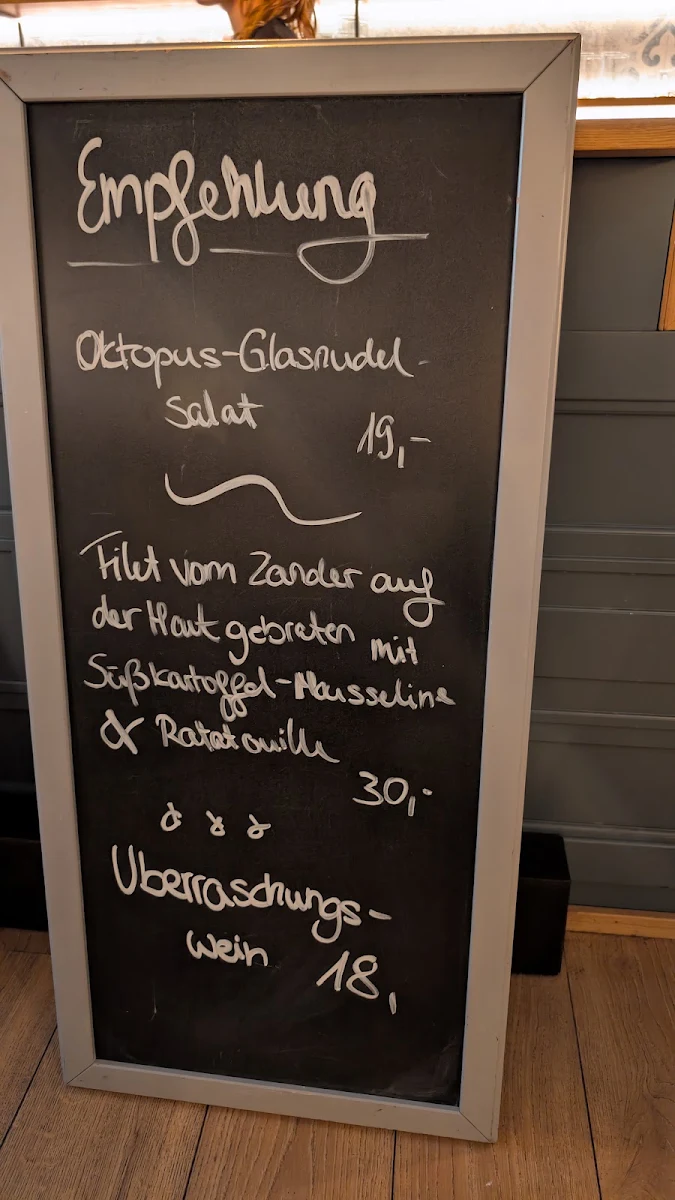 Empfehlung
Oktopus-Glasnudel-
salat 19,-
Filet vom Zander auf
der Haut gebraten mit
Süßkartoffel-Mousseline
& Ratatouille
30,-
Überraschungs-
wein 18,